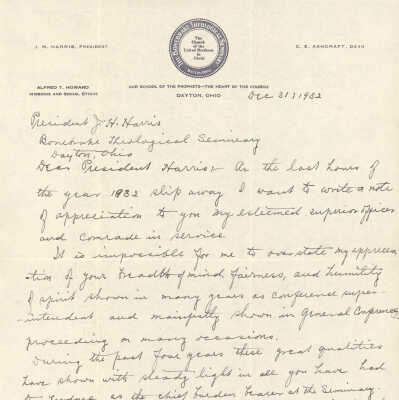 J. H. HARRIS, PRESIDENT
G. E. ASHCRAFT, DEAN
The Church of the United Brethren in Christ
ALFRED T. HOWARD
MISSIONS AND SOCIAL ETHICS
OUR SCHOOL OF THE PROPHETS—THE HEART OF THE CHURCH
DAYTON, OHIO
Dec 31, 1932
President J. H. Harris
Bonebrake Theological Seminary
Dayton, Ohio
Dear President Harris:- As the last hours of
the year 1932 slip away I want to write a note
of appreciation to you my esteemed superior officer
and comrade in service.
It is impossible for me to overstate my apprecia-
tion of your breadth of mind, fairness, and humility
of spirit shown in many years as conference super-
intendent and manifestly shown in General Conference
proceeding on many occasions.
During the past four years these great qualities
have shown with steady light in all you have had
as the chief burden bearer at the Seminary.